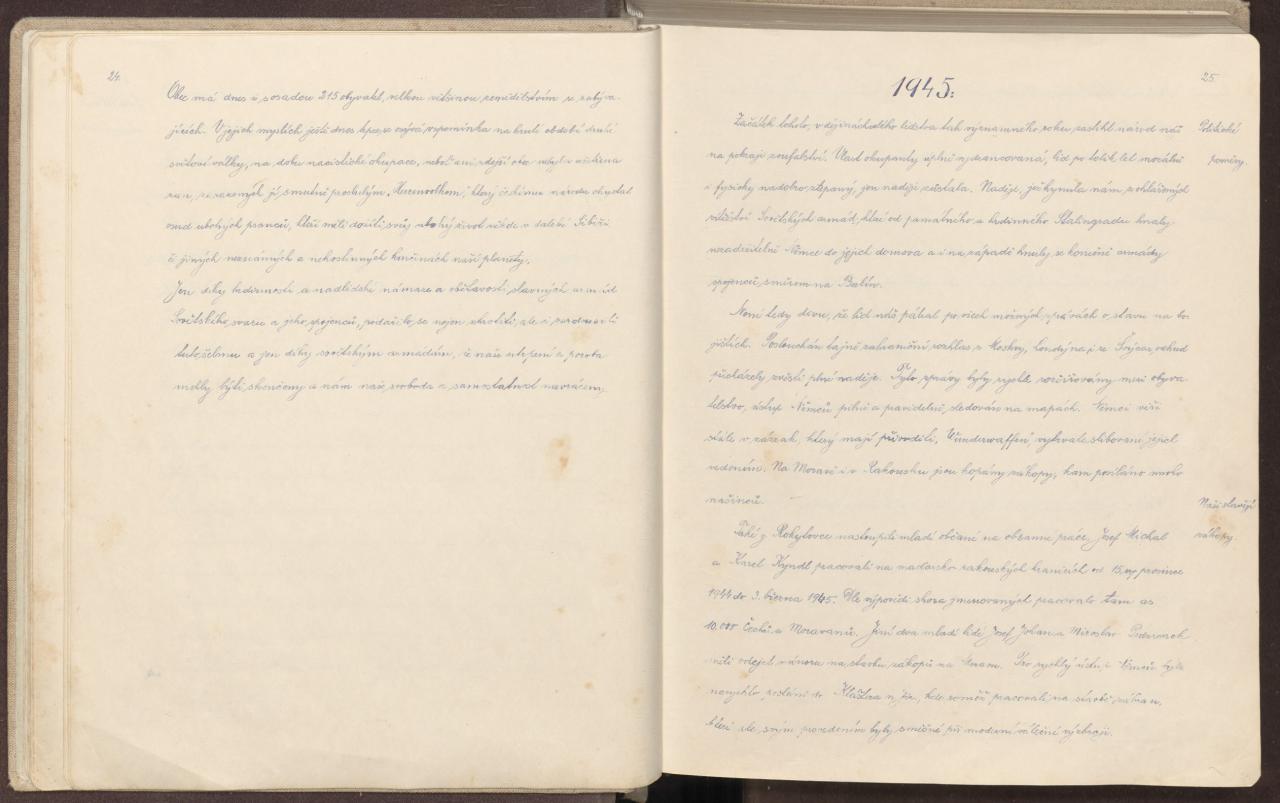 24.
Obec má dnes i s osadou 215 obyvatel, velkou většinou zemědělstvím se zabýva-
jících. V jejich myslích ještě dnes bezpečně vzpomínka na kruté období druhé
světové války, na dobu nacistické okupace, neboť ani zdejší obec nebyla
ran, zasazených jí smutně proslulým „Herrenvolkem", který českému národu chystal
osud ubohých psanců, kteří měli dožíti svůj ubohý život někde v daleké Sibiři
či jiných neznámých a nehostinných končinách naší planety.
Jen díky hrdinnosti a nadlidské námaze a obětavosti slavných armád
Sovětského svazu a jeho spojenců, podařilo se nejen zkrotiti, ale i
tuto šelmu a jen díky sovětským armádám, že naše utrpení a poroba
mohly býti skončeny a nám naše svoboda a samostatnost navrácena.
25
1945.
Začátek tohoto, v dějinách celého lidstva tak významného roku, zastihl národ náš
Politické
na pokraji zoufalství. Vlast okupanty úplně vydrancovaná, lid po tolik let morálně
poměry.
i fysicky nadobro ztepaný, jen naděje zůstala. Naděje, jež kynula nám z ohlášených
vítězství Sovětských armád, které od památného a hrdinného Stalingradu hnaly
nezadržitelně Němce do jejich domova a i na západě hnuly se konečně armády
spojenců směrem na Berlín.
Není tedy divu, že lid náš pátral po všech možných zprávách o stavu na bo-
jištích. Poslouchán tajně zahraniční rozhlas z Moskvy, Londýna i ze Švýcar, odkud
přicházely zvěsti plné naděje. Tyto zprávy byly rychle rozšiřovány mezi obyva-
telstvo, ústup Němců pilně a pravidelně sledován na mapách. Němci věří
stále v zázrak, který mají přivoditi „Wunderwaffen" vytrvale slibované jejich
vedením. Na Moravě i v Rakousku jsou kopány zákopy, kam posíláno mnoho
našinců.
Naši stavějí
Také z Rohylovce nastoupili mladí občané na obranné práce. Josef Michal
zákopy.
a Karel Kyndl pracovali na maďarsko rakouských hranicích od 15. prosince
1944 do 3. března 1945. Dle výpovědi shora jmenovaných pracovalo tam as
10.000 Čechů a Moravanů. Jiní dva mladí lidé Josef Johan a Miroslav
měli odejet v únoru na stavbu zákopů na Moravu. Pro rychlý ústup Němců byli
namísto posláni do Kláštera n./Jiz., kde rovněž pracovali na výrobě zátaras,
které ale svým provedením byly směšné při moderní válečné výzbroji.